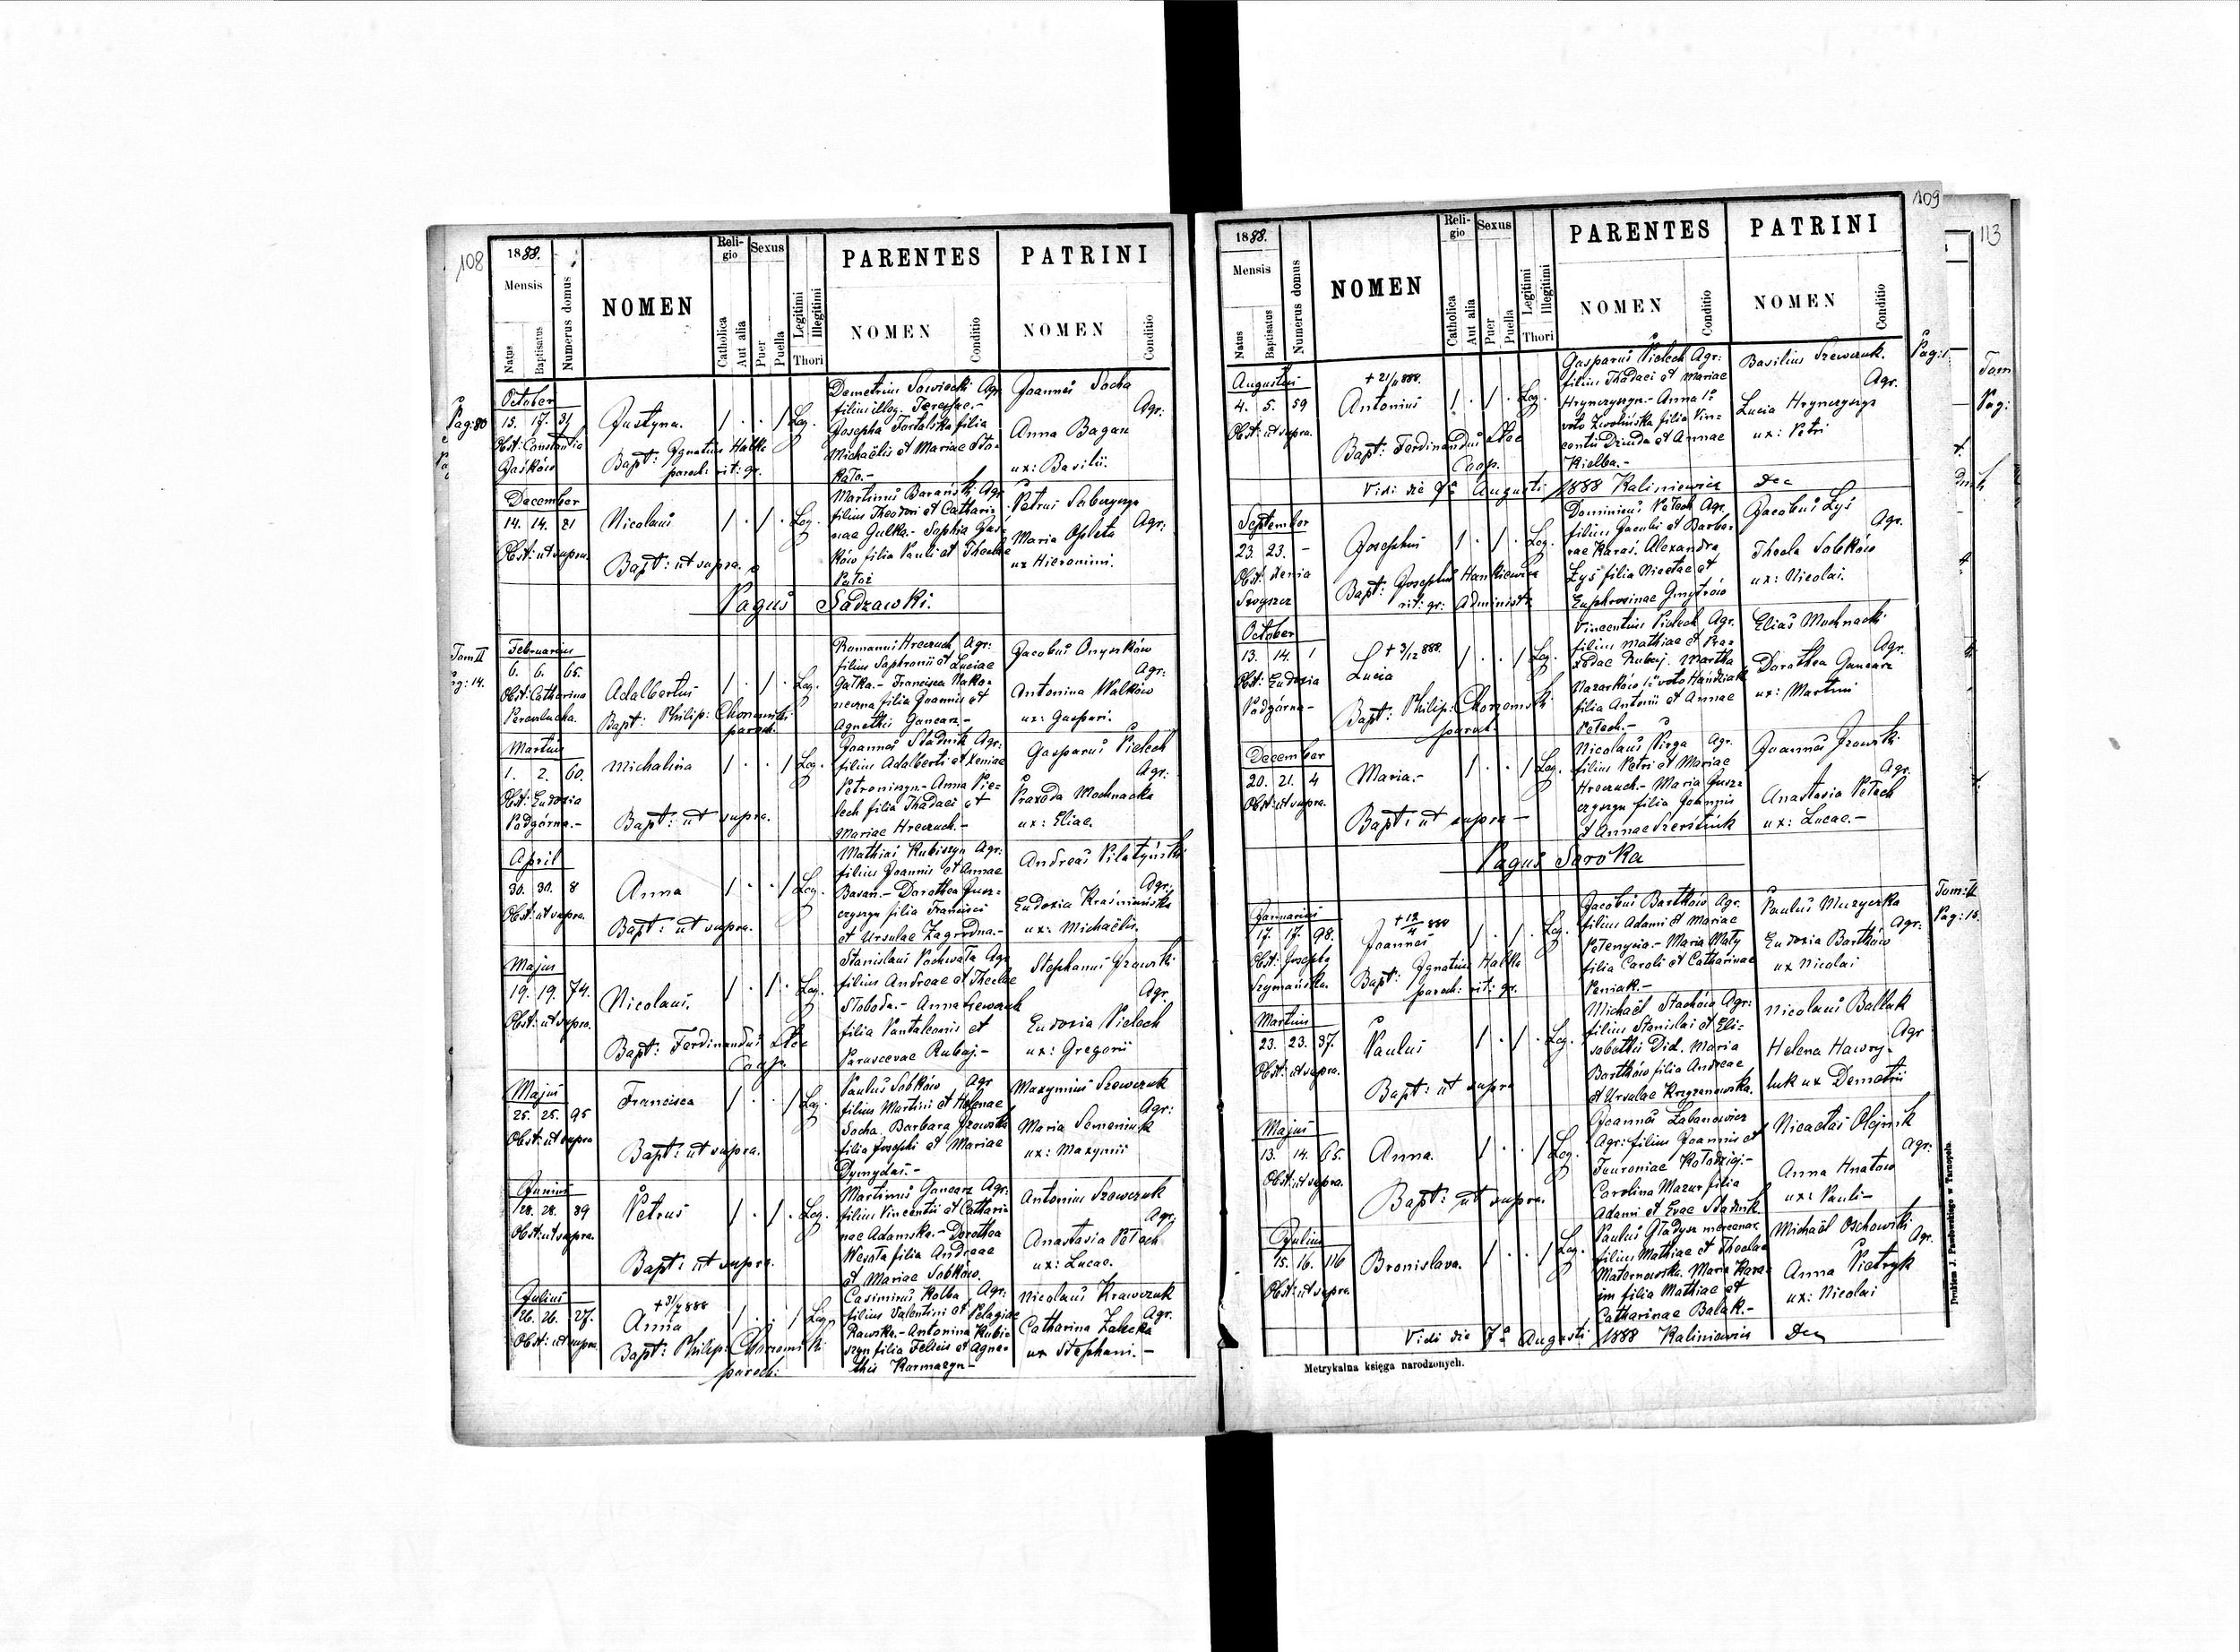 108
1888.
Mensis
Natus
Baptisatus
Numerus domus
NOMEN
Religio
Catholica
Aut alia
Sexus
Puer
Puella
Legitimi
Illegitimi
Thori
PARENTES
NOMEN
Conditio
PATRINI
NOMEN
Conditio
Pag: 80
October
15. 17. 31
Obst: Constantia
Jaśków
Justyna.
Bapt: Ignatius Halka
paroch: rit: gr.
Leg.
Demetrius Sawiecki Agr
filius illeg.Teressae.-
Josepha Tortalska filia
Michaëlis et Mariae Sto-
kało.-
Joannes Socha
Agr:
Anna Bagan
ux: Basilii.
December
14. 14. 21
Obst: ut supra.
Nicolaus
Bapt: ut supra.
Leg.
Martinus Barański Agr
filius Theodori et Cathari-
nae Gulka.- Sophia Jaś-
ków filia Pauli et Theclae
Petrus
Agr:
Maria Opleta
ux Hieronimi.
Pagus Sadzawki.
Tom II
Pag: 14.
Februarius
6. 6. 65.
Obst: Catharina
Adalbertus
Bapt: Philip: Choromski
paroch:
Leg.
Romanus Hreczuch Agr:
filius Saphronii et Luciae
Gałka.- Francisca Nako-
neczna filia Joannis et
Agnethis Gancarz.-
Jacobus Onyśków
Agr:
Antonina Walków
ux: Gaspari.
Martius
1. 2. 60.
Obst: Eudoxia
Podgórna.-
Michalina
Bapt: ut supra.
Leg.
Joannes Stadnik Agr:
filius Adalberti et Xeniae
Petroniszyn.- Anna Pie-
lech filia Thadaei et
Mariae Hreczuch.-
Gasparus Pielech
Agr:
Praxeda Mochnacka
ux: Eliae.
April
30. 30. 8
Obst: ut supra.
Anna
Bapt: ut supra.
Leg.
Mathias Kubiszyn Agr:
filius Joannis et Annae
Baran.- Dorothea Gusz-
czyszyn filia Francisci
et Ursulae Zagrodna.-
Andreas Pilatyński
Agr:
Eudoxia Kraśniańska
ux: Michaëlis.
Majus
19. 19. 74.
Obst: ut supra.
Nicolaus.
Bapt: Ferdinandus Stec
Coop.
Leg.
Stanislaus Pochwała Agr
filius Andreae et Theclae
Słoboda.- Anna Szewczuk
filia Pantaleonis et
Parascevae Rubaj.-
Stephanus Izowski
Agr.
Eudoxia Pielech
ux: Gregorii
Majus
25. 25. 95
Obst: ut supra
Francisca
Bapt: ut supra.
Leg.
Paulus Sobków Agr
filius Martini et Helenae
Socha. Barbara Izowska
filia Josephi et Mariae
Dymydas.-
Maxymius Szewczuk
Agr:
Maria Semeniuk
ux: Maxymii
Junius
28. 28. 89
Obst: ut supra.
Petrus
Bapt: ut supra.
Leg.
Martinus Gancarz Agr:
filius Vincentii et Cathari-
nae Adamska.- Dorothea
Wesoła filia Andreae
et Mariae Sobków.
Antonius Szewczuk
Agr.
Anastasia Petech
ux: Lucae.
Julius
26. 26. 27.
Obst: ut supra.
+ 31/7 888
Anna
Bapt: Philip: Choromski
paroch:
Leg.
Casimirus Kolba Agr:
filius Valentini et Pelagiae
Rawska.- Antonina Kubi-
szyn filia Felicis et Agne-
this Karmazyn-
Nicolaus Krawczuk
Agr.
Catharina Zalecka
ux Stephani.-
109
1888.
Mensis
Natus
Baptisatus
Numerus domus
NOMEN
Religio
Catholica
Aut alia
Sexus
Puer
Puella
Legitimi
Illegitimi
Thori
PARENTES
NOMEN
Conditio
PATRINI
NOMEN
Conditio
113
Augustus
4. 5. 59
Obst: ut supra.
Antonius
Bapt: Ferdinandus Stec
Coop.
Leg.
Gasparus Pielech Agr:
filius Thadaei et Mariae
Hrynczyszyn.- Anna 1º
voto Zwolińska filia Vin-
centii Dziuda et Annae
Kielba.-
Basilius Szewczuk.
Agr.
Lucia Hrynczyszyn
ux: Petri
Vidi die 7ª Augusti 1888 Kaliniewicz Dec
September
23. 23. -
Obst: Xenia
Josephus
Bapt: Josephus Hankiewicz
rit: gr: Administr
Leg.
Dominicus Petech Agr.
filius Jacobi et Barba-
rae Karaś. Alexandra
Łyś filia Nicetae et
Euphrosinae Gmytrów
Jacobus Łyś
Agr.
Thecla Sobków
ux: Nicolai.
October
13. 14. 1
Obst: Eudoxia
Podgórna-
+ 3/12 888.
Lucia
Bapt: Philip: Choromski
paroch.
Leg.
Vincentius Pielech Agr.
filius Mathiae et Pra-
xedae Rubaj. Martha
Nazarków 1º voto Handziuk
filia Antonii et Annae
Petech.-
Elias Mochnacki
Agr.
Dorothea Gancarz
ux: Martini
December
20. 21. 4
Obst: ut supra.
Maria.-
Bapt: ut supra-
Leg.
Nicolaus Pirga Agr.
filius Petri et Mariae
Hreczuch.- Maria Gusz-
czyszyn filia Joannis
et Annae
Joannes Izowski
Agr.
Anastasia Petech
ux: Lucae.-
Pagus Soroka
Tom: II
Pag: 15.
Januarius
17. 17. 98.
Obst: Josepha
Szymańska.
+ 12/4 888
Joannes
Bapt: Ignatius Halka
paroch: rit: gr.
Leg.
Jacobus Bartków Agr.
filius Adami et Mariae
Petenycia.- Maria Mały
filia Caroli et Catharinae
Peniak.-
Paulus Muzyczka
Agr:
Eudoxia Bartków
ux Nicolai
Martius
23. 23. 37.
Obst: ut supra.
Paulus
Bapt: ut supra
Leg.
Michaël Stachów Agr:
filius Stanislai et Eli-
sabethis Did. Maria
Bartków filia Andreae
et Ursulae Krzyzanowska.
Nicolaus Ballak
Agr
Helena Hawry-
luk ux Demetrii
Majus
13. 14. 65.
Obst: ut supra.
Anna.
Bapt: ut supra.
Leg.
Joannes Łabanowicz
Agr: filius Joannis et
Febroniae Kołodziej.-
Carolina Mazur filia
Adami et Evae Stadnik.
Nicetas Olejnik
Agr:
Anna Hnatow
ux: Pauli-
Julius
15. 16. 116
Obst: ut supra.
Bronislava.
Leg.
Paulus Gładysz mercenar.
filius Mathiae et Theclae
Maternowska. Maria Kara-
im filia Mathiae et
Catharinae Balak.-
Michaël Oschowski
Agr.
Anna Pietryk
ux: Nicolai
Vidi die 7ª Augusti 1888 Kaliniewicz Dec
Metrykalna księga narodzonych.
Drukiem J. Pawłowskiego w Tarnopolu.